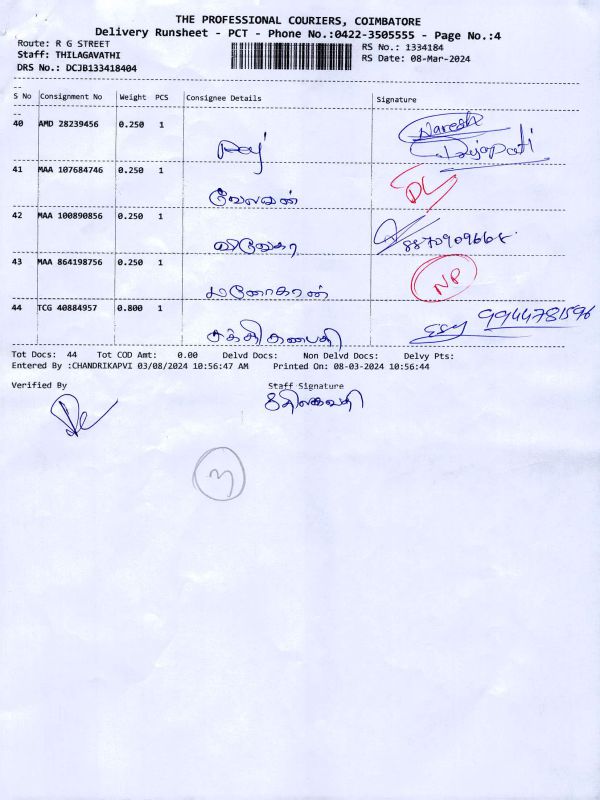 THE PROFESSIONAL COURIERS, COIMBATORE
Delivery Runsheet - PCT - Phone No.:0422-3505555 - Page No.:4
Route: R G STREET
RS No.: 1334184
Staff: THILAGAVATHI
RS Date: 08-Mar-2024
DRS No.: DCJB133418404
S No Consignment No Weight PCS Consignee Details Signature
40 AMD 28239456 0.250 1 Raj Naresh
41 MAA 107684746 0.250 1 வேலவன் DL
42 MAA 100890856 0.250 1 8870909668
43 MAA 864198756 0.250 1 மனோகரன் NP
44 TCG 40884957 0.800 1 சக்திகணபதி 9944781596
Tot Docs: 44 Tot COD Amt: 0.00 Delvd Docs: Non Delvd Docs: Delvy Pts:
Entered By :CHANDRIKAPVI 03/08/2024 10:56:47 AM Printed On: 08-03-2024 10:56:44
Verified By Staff Signature